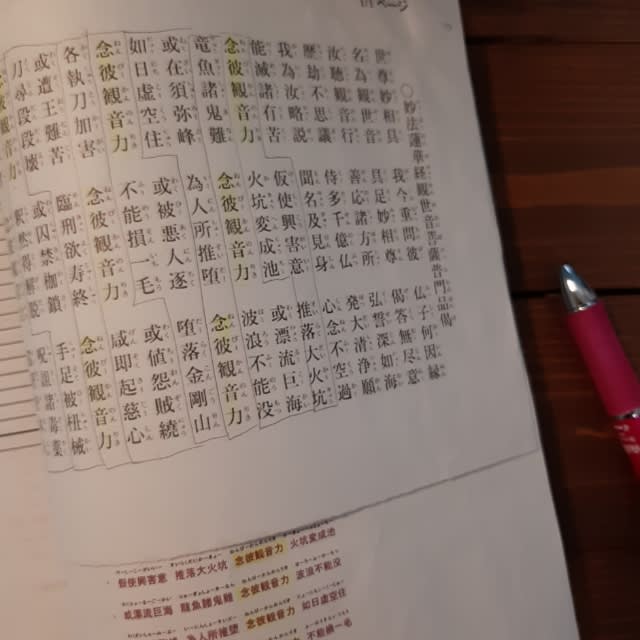 ○妙法蓮華経観世音菩薩普門品偈
世尊妙相具 我今重問彼 仏子何因縁
名為観世音 具足妙相尊 偈答無尽意
汝聴観音行 善応諸方所 弘誓深如海
歴劫不思議 侍多千億仏 発大清浄願
我為汝略説 聞名及見身 心念不空過
能滅諸有苦 仮使興害意 推落大火坑
念彼観音力 火坑変成池 或漂流巨海
竜魚諸鬼難 念彼観音力 波浪不能没
或在須弥峰 為人所推堕 念彼観音力
如日虚空住 或被悪人逐 堕落金剛山
念彼観音力 不能損一毛 或値怨賊繞
各執刀加害 念彼観音力 咸即起慈心
或遭王難苦 臨刑欲寿終 念彼観音力
刀尋段段壊 或囚禁枷鎖 手足被杻械
念彼観音力 釈然得解脱 呪詛諸毒薬
假使興害意 推落大火坑 念彼観音力 火坑変成池
或漂流巨海 龍魚諸鬼難 念彼観音力 波浪不能没
為人所推堕 念彼観音力 如日虚空住
不能損一毛